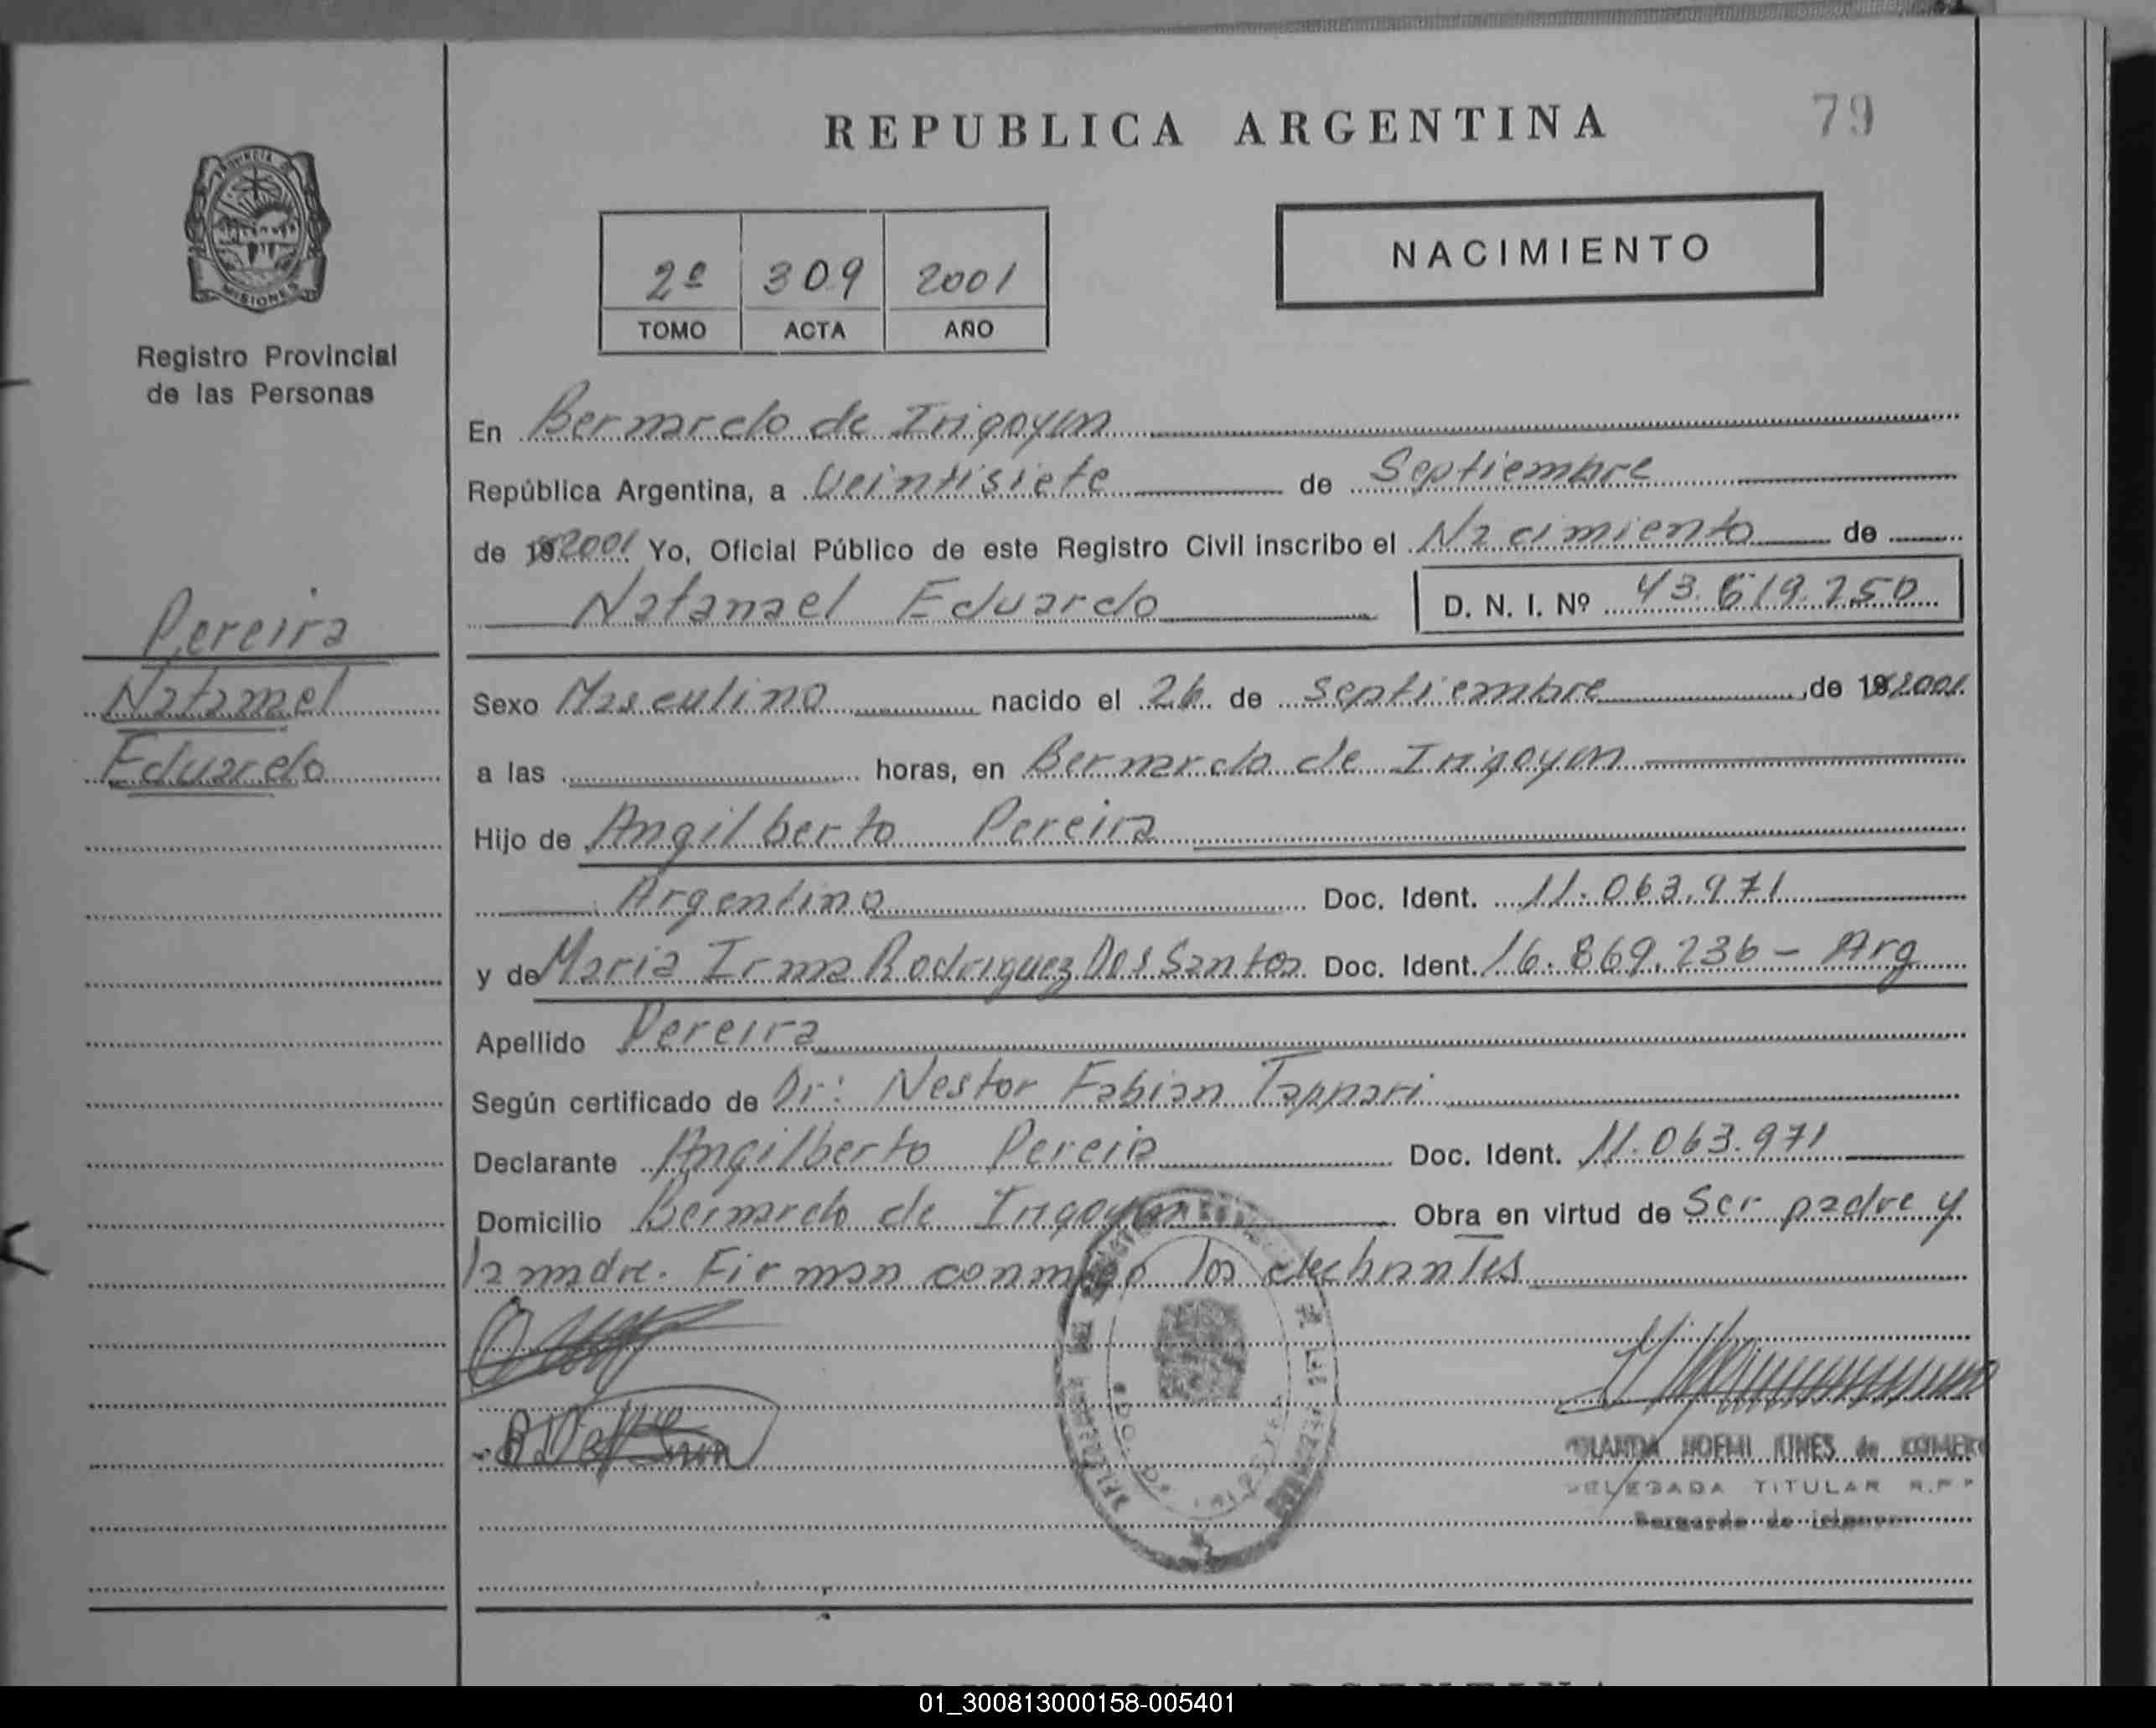 REPUBLICA ARGENTINA
79
PROVINCIA D
MISIONES
Registro Provincial
de las Personas
2º 309 2001
TOMO ACTA AÑO
NACIMIENTO
En Bernardo de Irigoyen
República Argentina, a Veintisiete de Septiembre
de 19 2001 Yo, Oficial Público de este Registro Civil inscribo el Nacimiento de
Natanael Eduardo D. N. I. Nº 43.619.250
Pereira
Natanael
Eduardo
Sexo Masculino nacido el 26 de Septiembre de 19 2001.
a las horas, en Bernardo de Irigoyen
Hijo de Angilberto Pereira
Argentino Doc. Ident. 11.063.971
y de Maria Irma Rodriguez Dos Santos Doc. Ident. 16.869.236 - Arg
Apellido Pereira
Según certificado de Dr: Nestor Fabian Tappari
Declarante Angilberto Pereira Doc. Ident. 11.063.971
Domicilio Bernardo de Irigoyen Obra en virtud de Ser padre y
la madre. Firman conmigo los
NOEMI KINES de
DELEGADA TITULAR R.P.P
Bernardo de Irigoyen
01_300813000158-005401